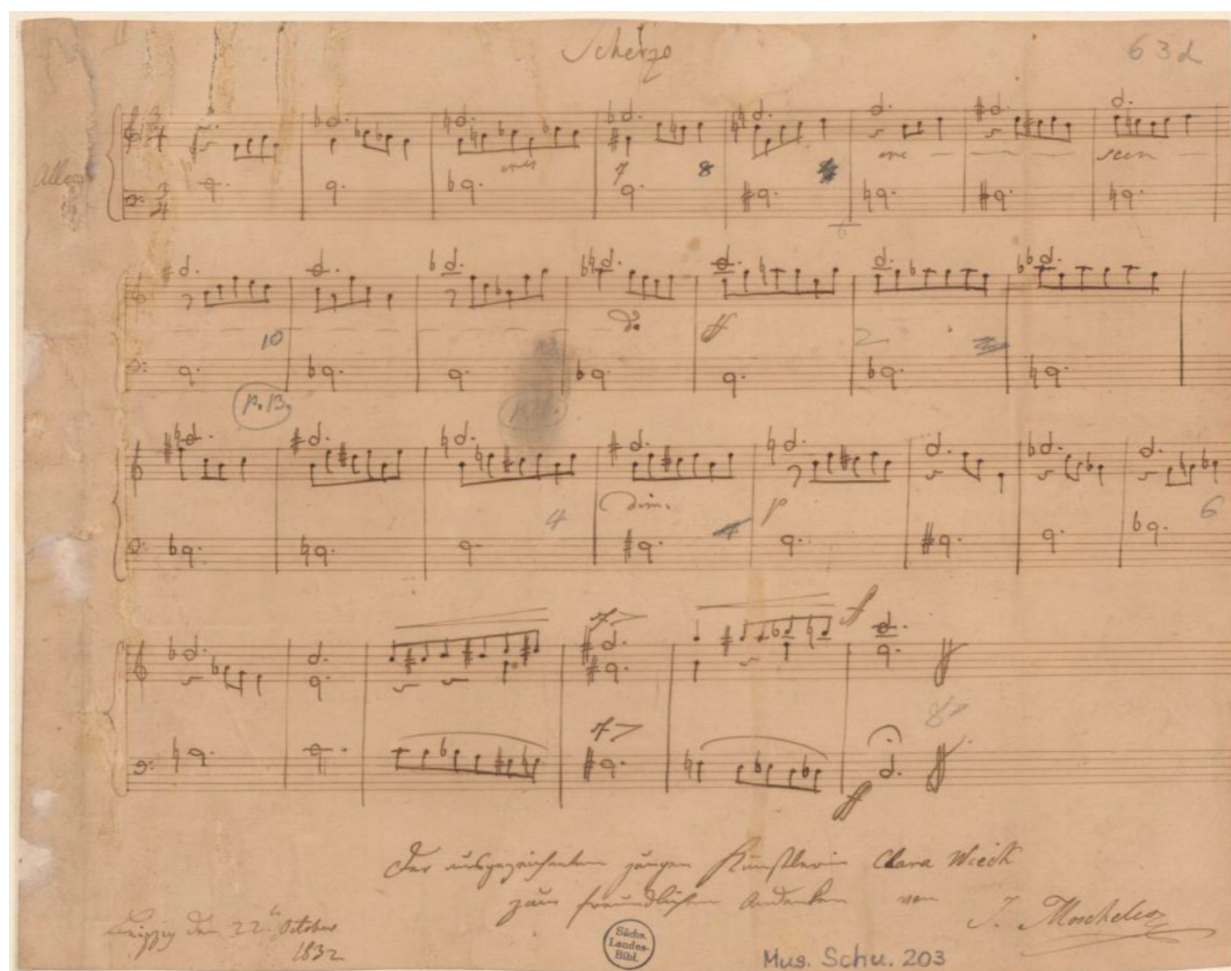 Scherzo
63d
Allegro
3/4
3/4
cres
7
8
cre - - - scen -
6
do
ff
10
2
p. 13,
dim.
p
4
4
6
f>
ff
f>
8
ff
Der ausgezeichneten jungen Künstlerin Clara Wieck
zum freundlichen Andenken von
J. Moscheles
Leipzig den 22t October
1832
Sächs.
Landes-
Bibl.
Mus. Schu. 203